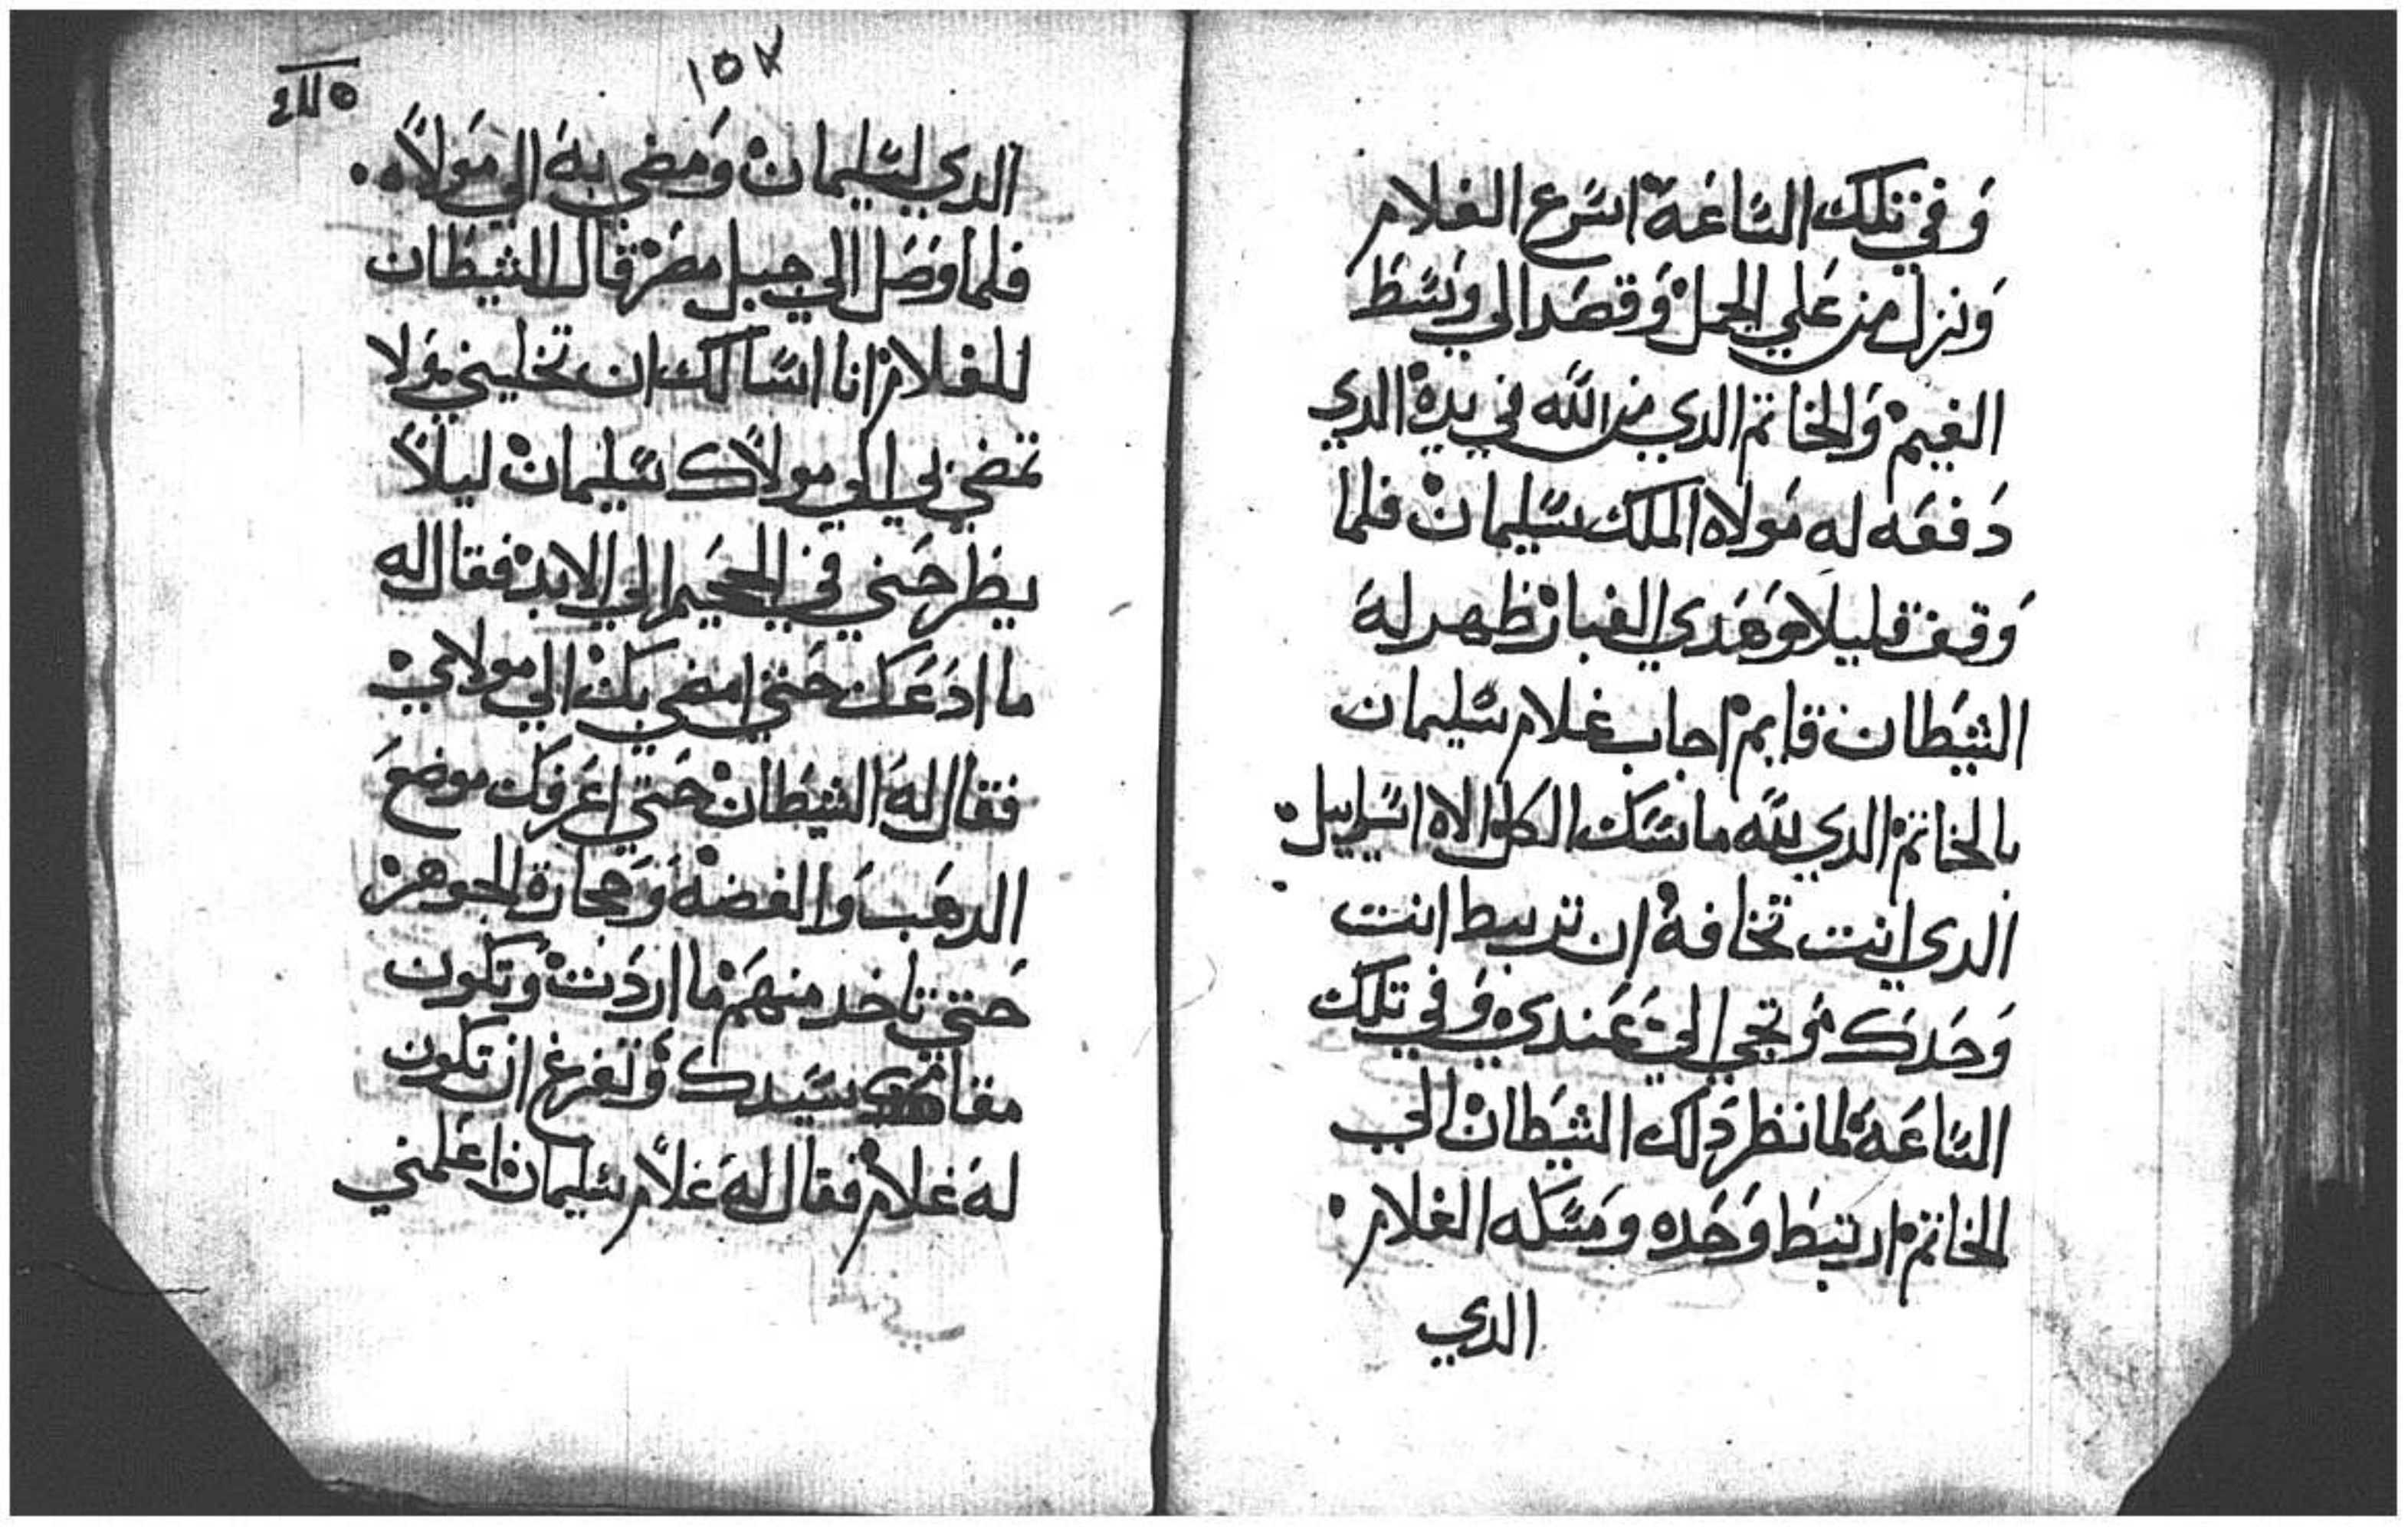 وفي تلك الساعة اسرع الغلام
ونزل من علي الجمل وقصد الي وسط
الغيم والخاتم الدي من الله في يده الدي
دفعه له مولاه الملك سليمان فلما
وقف قليلا وهدي الغبار ظهر له
الشيطان قايم اجاب غلام سليمان
بالخاتم الدي لله ماسك الكل الاه اسراييل
الدي انت تخافه ان تربط انت
وحدك وتجي الي عندي وفي تلك
الساعة لما نظر دلك الشيطان الي
الخاتم ارتبط وحده ومسكه الغلام
الدي
١٥٧
الدي لسليمان ومضي به الي مولاه
فلما وصل الي جبل مصر قال الشيطان
للغلام انا اسالك ان تخليني ولا
تمضي بي الي مولاك سليمان ليلا
يطرحني في الجحيم الي الابد فقال له
ما ادعك حتي امضي بك الي مولاي
فقال له الشيطان حتي اعرفك موضع
الدهب والفضه وحجارة الجوهر
حتي تاخد منهم ما اردت وتكون
سيدك وتفرغ ان تكون
له غلام فقال له غلام سليمان اعلمني